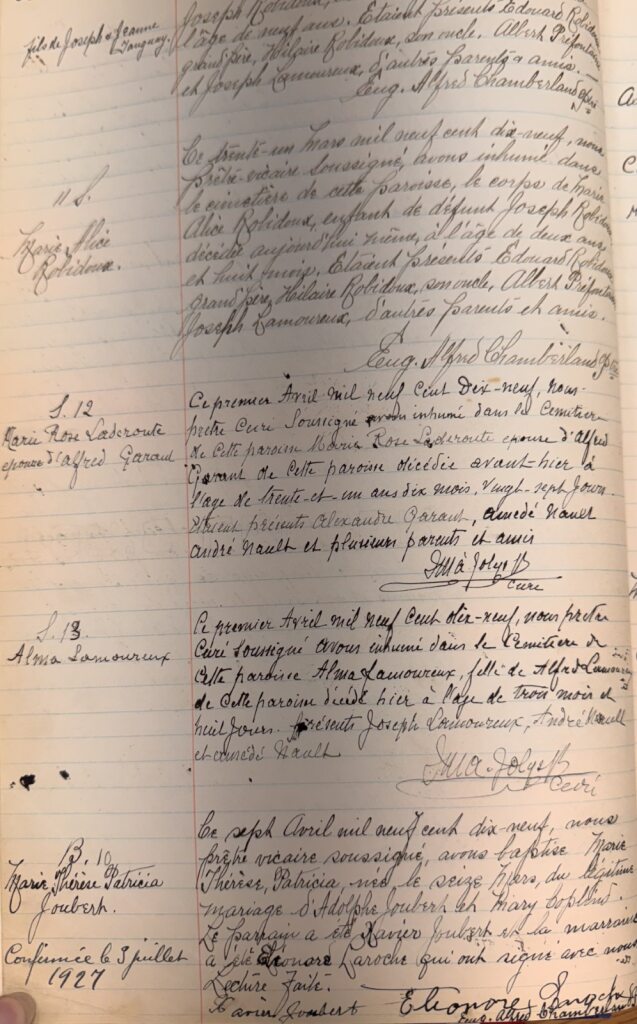 fils de Joseph & Jeanne
Tanguay.
Joseph Robidoux,
l'âge de neuf ans. Etaient présents Edouard Robidoux
grand'père, Hilaire Robidoux, son oncle. Albert Préfontaine
et Joseph Lamoureux, d'autres parents & amis.
Eug. Alfred Chamberland
11 S.
Marie Alice
Robidoux.
Ce trente-un Mars mil neuf cent dix-neuf, nous
prêtre-vicaire soussigné, avons inhumé dans
le cimetière de cette paroisse, le corps de Marie
Alice Robidoux, enfant de défunt Joseph Robidoux
décédée aujourd'hui même, à l'âge de deux ans
et huit mois. Etaient présents Edouard Robidoux
grand'père, Hilaire Robidoux, son oncle, Albert Préfontaine
Joseph Lamoureux, d'autres parents et amis.
Eug. Alfred Chamberland
S. 12
Marie Rose Laderoute
epouse d'Alfred Garant
Ce premier Avril Mil neuf Cent Dix-neuf, nous-
prêtre Curé Soussigné avons inhumé dans le Cemitiere
de Cette paroisse Marie Rose Laderoute epouse d'Alfred
Garant de Cette paroisse décédée avant-hier à
l'age de trente-et-un ans dix mois, vingt-sept Jours.
Etaient présents Alexandre Garant, amedé Nault
andré Nault et plusieurs parents et amis
Joly
Curé
S. 13
Alma Lamoureux
Ce premier Avril Mil neuf Cent dix-neuf, nous pretre
Curé Soussigné avons inhumé dans le Cemitiere de
Cette paroisse Alma Lamoureux, fille de Alfred Lamoureux
de Cette paroisse décédé hier à l'age de trois mois et
huit Jours. présents Joseph Lamoureux, André Nault
et amédé Nault
Joly
Curé
B. 10
Marie Thérèse Patricia
Joubert.
Confirmée le 3 juillet
1927
Ce sept Avril mil neuf cent dix-neuf, nous
prêtre vicaire soussigné, avons baptisé Marie
Thérèse, Patricia, née le seize Mars, du légitime
mariage d'Adolphe Joubert et Mary
Le parrain a été Xavier Joubert et la marraine
a été Eléonore Laroche qui ont signé avec nous
Lecture faite.
Xavier Joubert
Eléonore
Eug. Alfred Chamberland